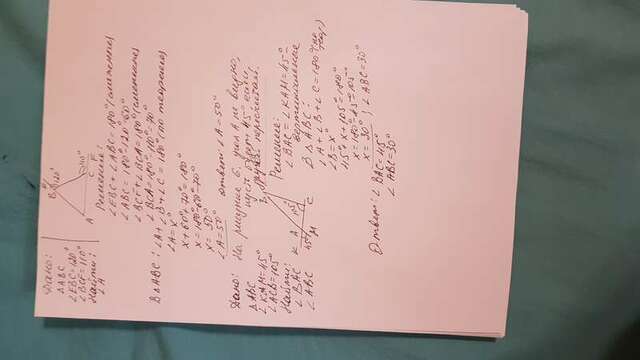 Дано:
△ABC
∠EBC=120°
∠BCF=110°
Найти:
∠A
E
B 120°
A
C
110°
F
Решение:
∠EBC+∠ABC=180° (смежные)
∠ABC=180°-120°=60°
∠BCF+∠BCA=180° (смежные)
∠BCA=180°-110°=70°
В △ABC: ∠A+∠B+∠C=180° (по теореме)
∠A=x°
x+60°+70°=180°
x=180°-60°-70°
x=50°
∠A=50° Ответ: ∠A=50°
Дано:
△ABC
∠KAM=45°
∠ACB=105°
Найти:
∠BAC
∠ABC
На рисунке 6 угол A не видно,
пусть будет 45° если,
другой пересчитай.
B
K A
105°
45°
M
C
Решение:
∠BAC=∠KAM=45°-
вертикальные
В △ABC:
∠A+∠B+∠C=180° (по
теор)
∠B=x°
45°+x+105°=180°
x=180°-45°-105°
x=30°; ∠ABC=30°
Ответ: ∠BAC=45°
∠ABC=30°